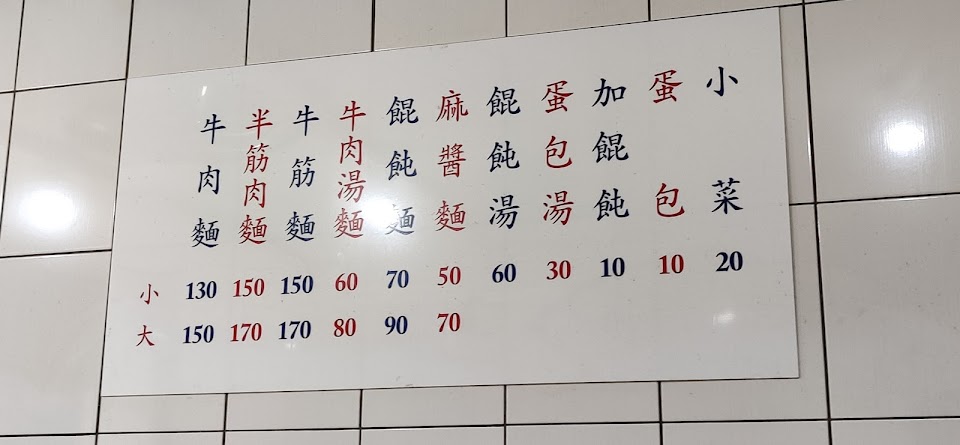 牛肉麵 半筋肉麵 牛筋麵 牛肉湯麵 餛飩麵 麻醬麵 餛飩湯 蛋包湯 加餛飩 蛋包 小菜
小 130 150 150 60 70 50 60 30 10 10 20
大 150 170 170 80 90 70